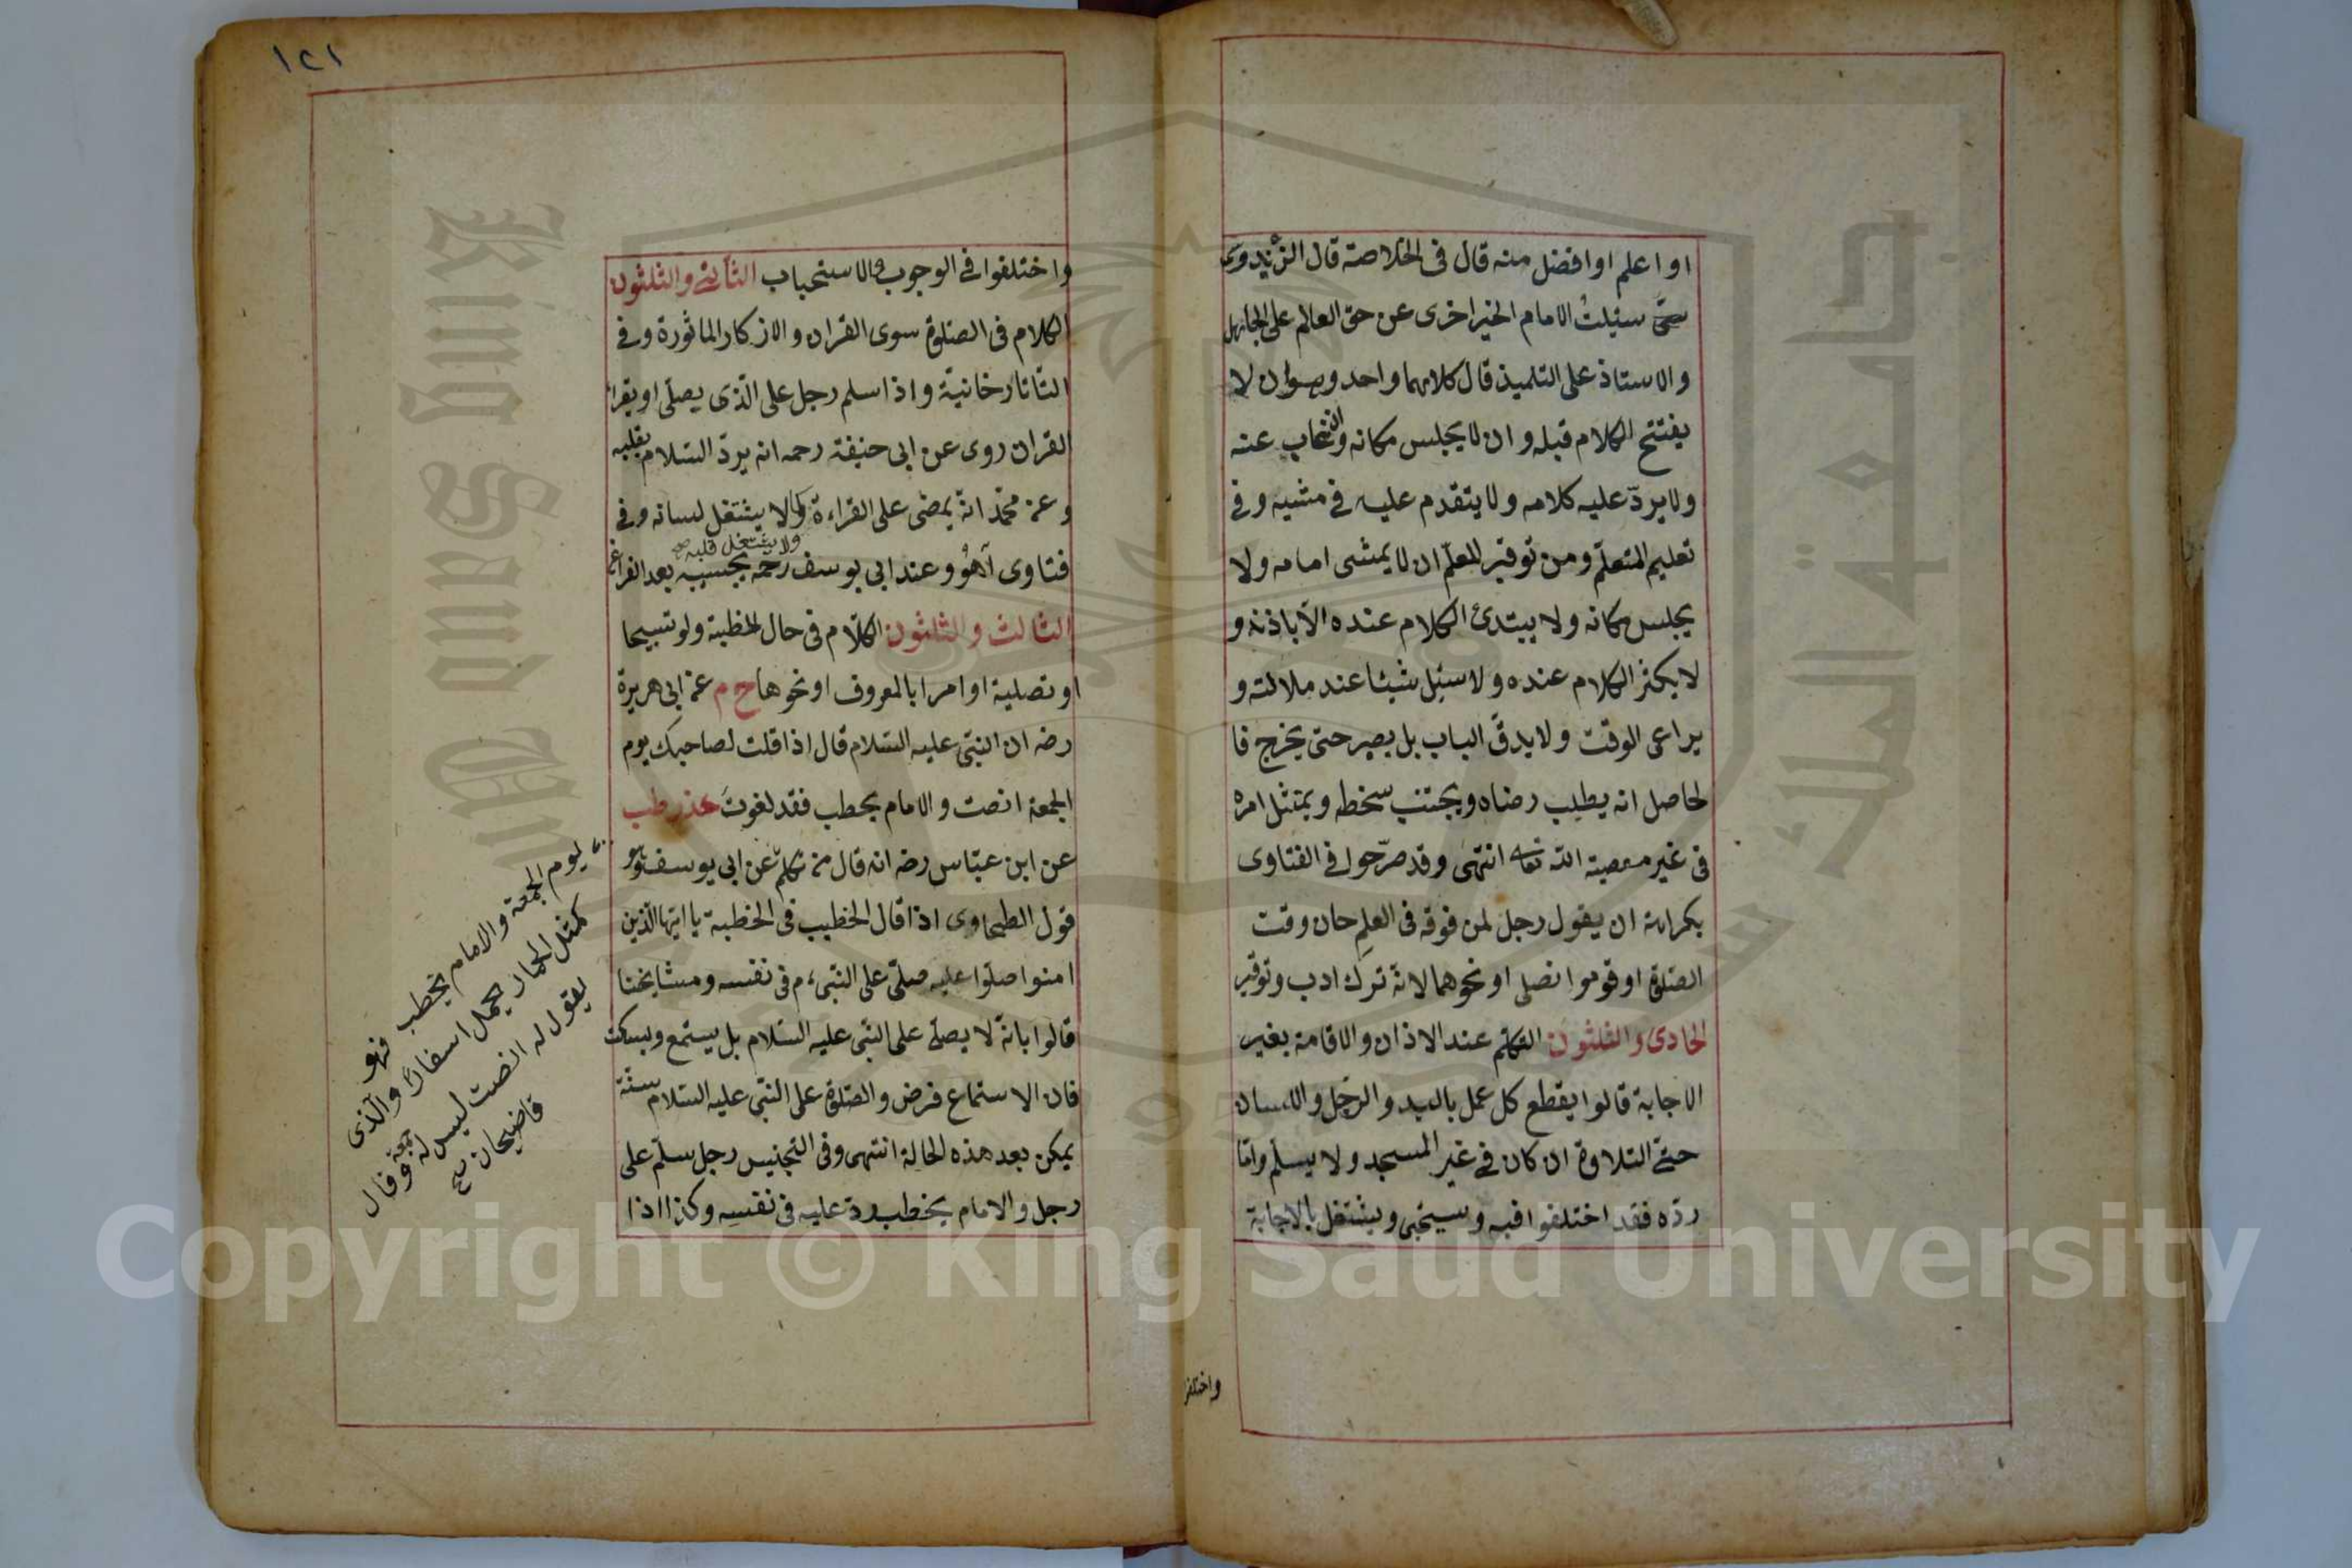 او اعلم او افضل منه قال فى الخلاصة قال الزندويى
ستى سئلت الامام الخيزاخزى عن حق العالم على الجاهل
والاستاذ على التلميذ قال كلاهما واحد وهو ان لا
يفتتح الكلام قبله و ان لا يجلس مكانه وان غاب عنه
ولا يردّ عليه كلامه ولا يتقدم عليه فى مشيه وفى
تعليم المتعلّم ومن توقير المعلّم ان لا يمشى امامه ولا
يجلس مكانه ولا يبتدئ الكلام عنده الّا باذنه و
لا يكثر الكلام عنده ولا سئل شيئا عند ملالته و
يراعى الوقت ولا يدقّ الباب بل يصبر حتى يخرج فا
لحاصل انه يطلب رضاه ويجتنب سخطه ويمتثل امره
فى غير معصية الله تعالى انتهى وقد صرّحوا فى الفتاوى
بكراهة ان يقول رجل لمن فوقه فى العلم حان وقت
الصّلوة او قوموا نصلى او نحوهما لانّه ترك ادب وتوقير
الحادى والثلثون التكلّم عند الاذان والاقامة بغير
الاجابة قالوا يقطع كل عمل باليد والرّجل واللسان
حتّى التلاوة ان كان فى غير المسجد ولا يسلّم وامّا
ردّه فقد اختلفوا فيه وسيجئ ويشتغل بالاجابة
واختلفوا
١٢١
واختلفوا فى الوجوب والاستحباب الثانى والثلثون
الكلام فى الصّلوة سوى القران والاذكار الماثورة وفى
التّاتارخانيّة واذا سلم رجل على الّذى يصلّى او يقرا
القران روى عن ابى حنيفة رحمه انه يردّ السّلام بقلبه
وعن محمّد انّه يمضى على القراءة ولا يشتغل لسانه وفى
ولا يشتغل قلبه صح
فتاوى آهو وعند ابى يوسف رحمه يجيبه بعد الفراغ
الثالث والثلثون الكلام فى حال الخطبة ولو تسبيحا
او تصلية او امرا بالمعروف او نحوها خ م عن ابى هريرة
رضه ان النبىّ عليه السّلام قال اذا قلت لصاحبك يوم
الجمعة انصت والامام يخطب فقد لغوتَ حد ز طب
عن ابن عبّاس رضه انه قال من تكلّم عن ابى يوسف وهو
قول الطحاوى اذا قال الخطيب فى الخطبة يا ايّها الّذين
امنوا صلّوا عليه صلّى على النّبى ءم فى نفسه ومشايخنا
قالوا بانّه لا يصلّى على النّبى عليه السّلام بل يستمع ويسكت
فان الاستماع فرض والصّلوة على النّبى عليه السّلام سنّة
يمكن بعد هذه الحالة انتهى وفى التجنيس رجل سلّم على
رجل والامام يخطب ردّ عليه فى نفسه وكذا اذا
يوم الجمعة والامام يخطب فهو
كمثل الحمار يحمل اسفارًا والّذى
يقول له انصت ليس له جمعة وقال
قاضيخان صح
Copyright © King Saud University
King Saud University
جامعة الملك سعود